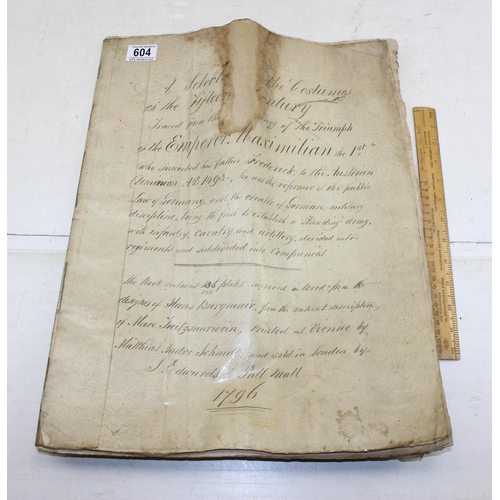 604
A Selec the Costume
of the Fifteen entury
Traced from the ing of the Triumph
of the Emperor Maximilian the 1st
who succeeded his father Frederick to the Austrian
Dominion AD 1493, he was the reformer of the public
Law of Germany, and the creator of German military
discipline, being the first to establish a standing army,
with infantry, cavalry and artillery, divided into
regiments and subdivided into Companies
The Book contains 135 plates engraved on wood from the
designs of Hans Burgmair, from the ancient description
of Marc Treitzsaurwein, printed at Vienna by
Matthias Andre Schmidt, and sold in London by
J Edwards Pall Mall
1796